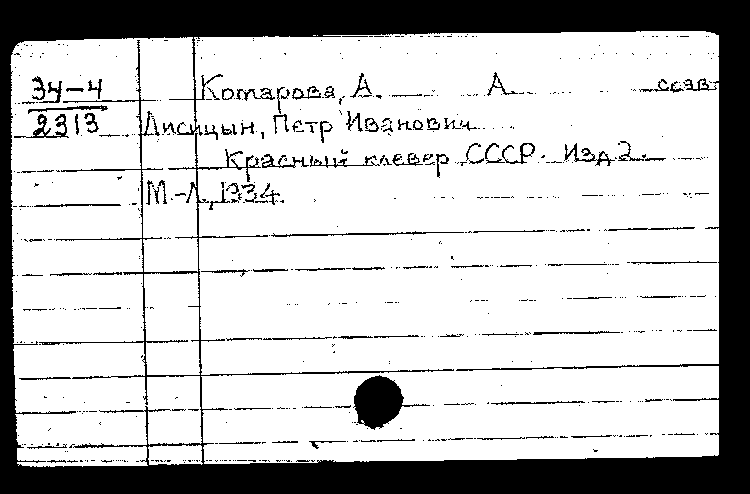 34-4
2313
Комарова, А. А. соавт
Лисицын, Петр Иванович
Красный клевер СССР. Изд 2.
М.-Л., 1934.